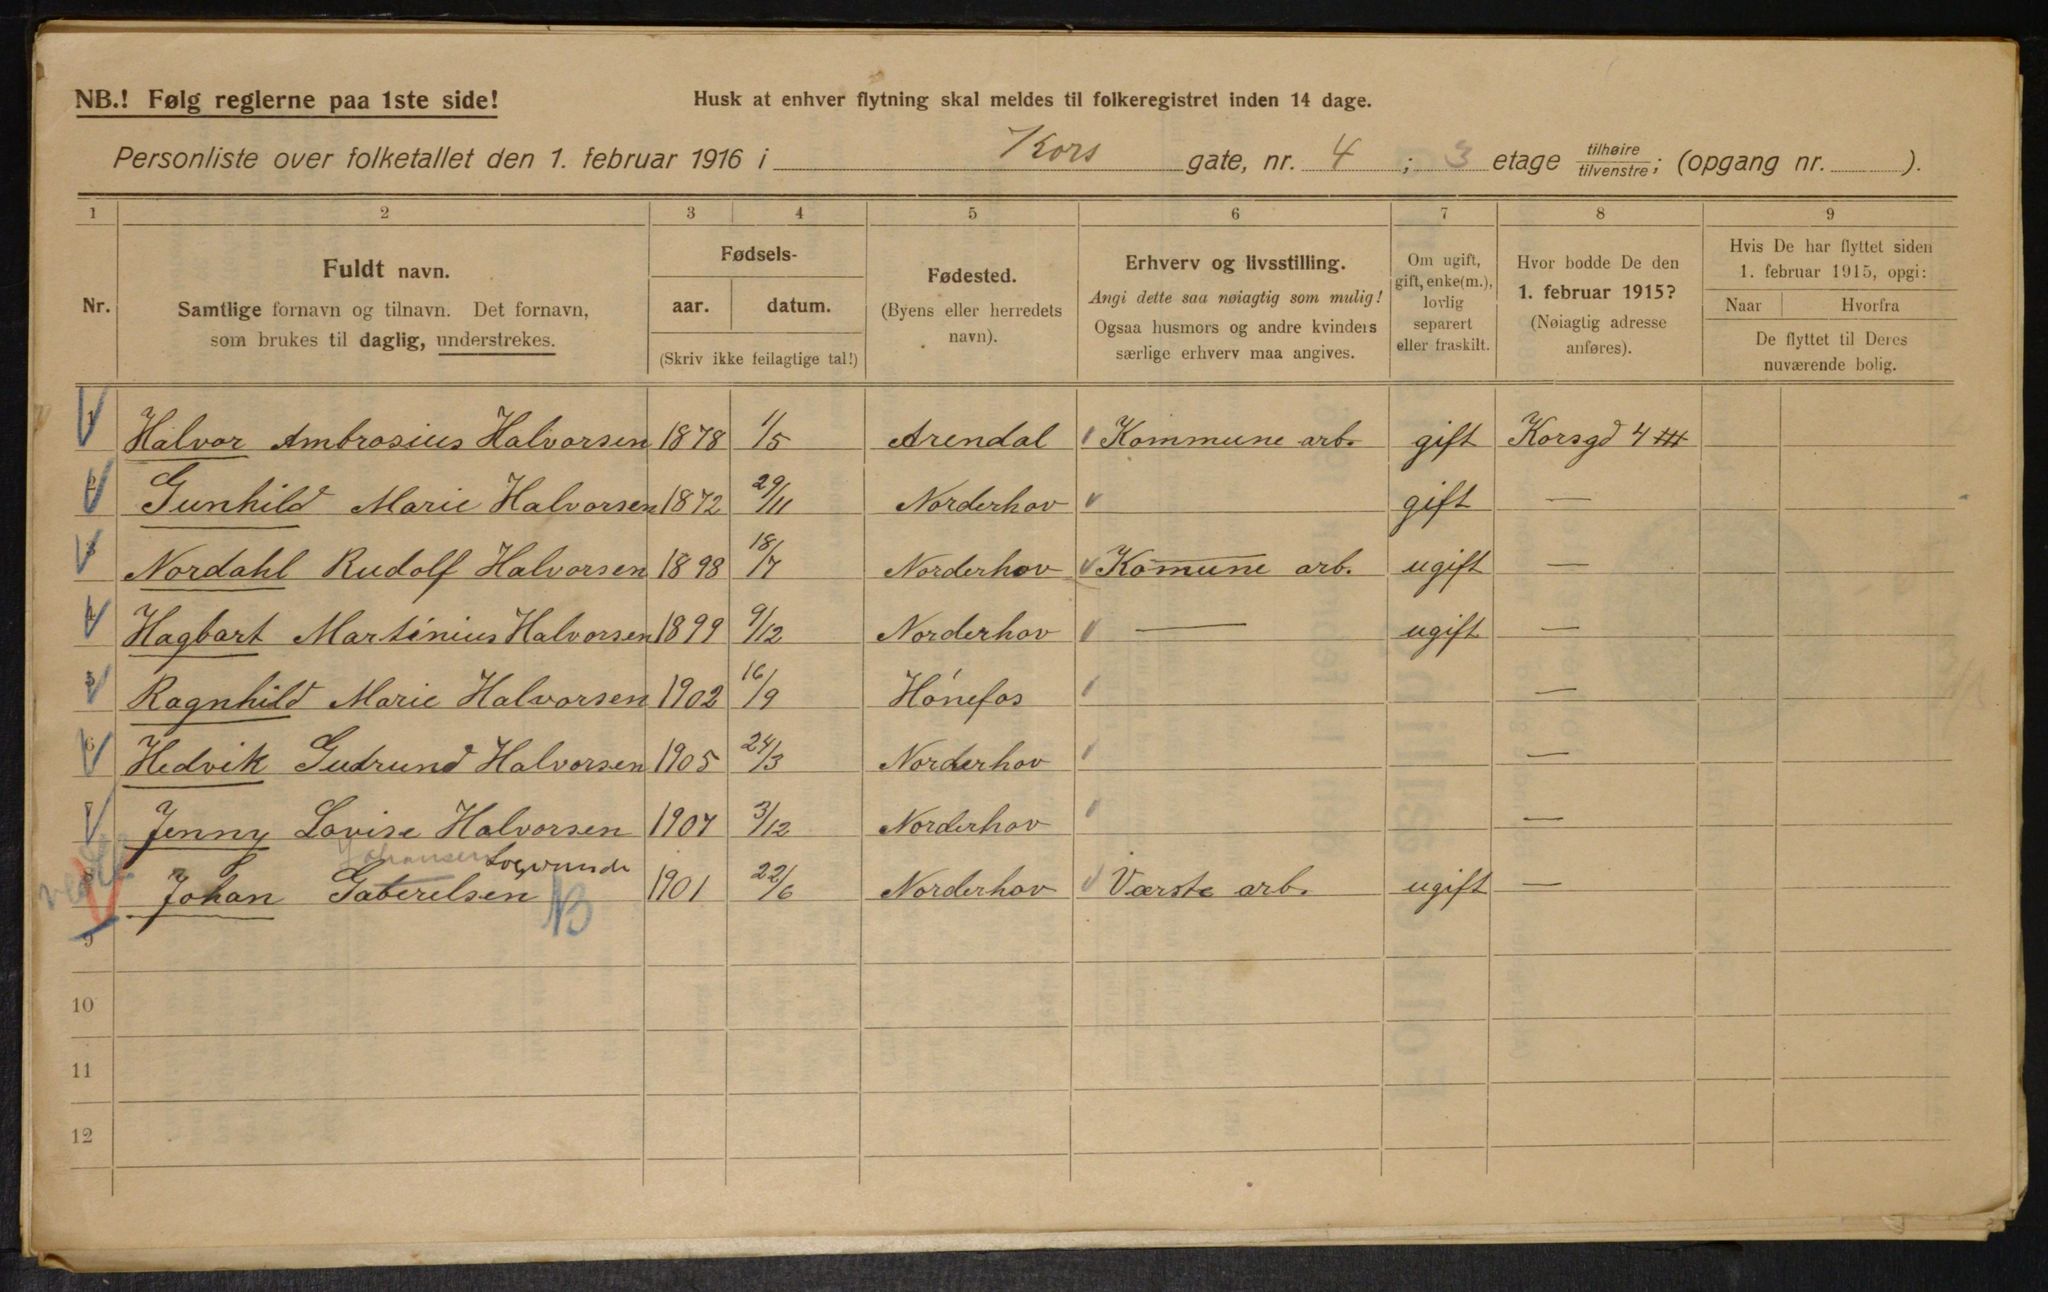 NB.! Følg reglerne paa 1ste side!
Husk at enhver flytning skal meldes til folkeregistret inden 14 dage.
Personliste over folketallet den 1. februar 1916 i Kors gate, nr. 4 ; 3 etage tilhøire/tilvenstre; (opgang nr. ).
1 2 3 4 5 6 7 8 9
Nr.
Fuldt navn.
Samtlige fornavn og tilnavn. Det fornavn,
som brukes til daglig, understrekes.
Fødsels-
aar. datum.
(Skriv ikke feilagtige tal!)
Fødested.
(Byens eller herredets
navn).
Erhverv og livsstilling.
Angi dette saa nøiagtig som mulig!
Ogsaa husmors og andre kvinders
særlige erhverv maa angives.
Om ugift,
gift, enke(m.),
lovlig
separert
eller fraskilt.
Hvor bodde De den
1. februar 1915?
(Nøiagtig adresse
anføres).
Hvis De har flyttet siden
1. februar 1915, opgi:
Naar Hvorfra
De flyttet til Deres
nuværende bolig.
1 Halvor Ambrosius Halvorsen 1878 1/5 Arendal Kommune arb. gift Korsgd 4 III
2 Gunhild Marie Halvorsen 1872 29/11 Norderhov gift —
3 Nordahl Rudolf Halvorsen 1898 18/7 Norderhov Komune arb. ugift —
4 Hagbart Martinius Halvorsen 1899 9/12 Norderhov — ugift —
5 Ragnhild Marie Halvorsen 1902 16/9 Hónefos —
6 Hedvik Gudrund Halvorsen 1905 24/3 Norderhov —
7 Jenny Lovise Halvorsen 1907 3/12 Norderhov —
Johansen
8 Johan Gaberelsen 1901 22/6 Norderhov Værste arb. ugift —
NB
9
10
11
12